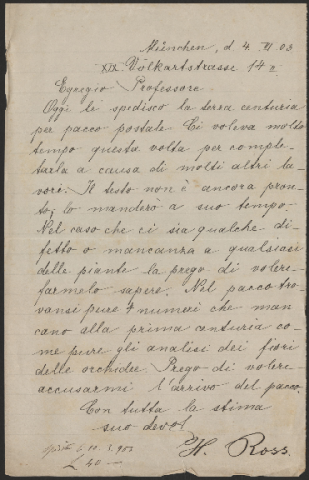 München, d. 4. VI 03
XIX. Volkartstrasse 14 2
Egregio Professore
Oggi le spedisco la terza centuria
per pacco postale Ci voleva molto
tempo questa volta per comple-
tarla a causa di molti altri la-
vori. Il testo non è ancora pron-
to, lo manderò a suo tempo.
Nel caso che ci sia qualche di-
fetto o mancanza a qualsiasi
delle piante la prego di volere-
farmelo sapere. Nel pacco tro-
vansi pure 7 numeri che man
cano alla prima centuria co-
me pure gli analisi dei fiori
delle orchidee. Prego di volere-
accusarmi l'arrivo del pacco.
Con tutta la stima
suo devot
H. Ross.